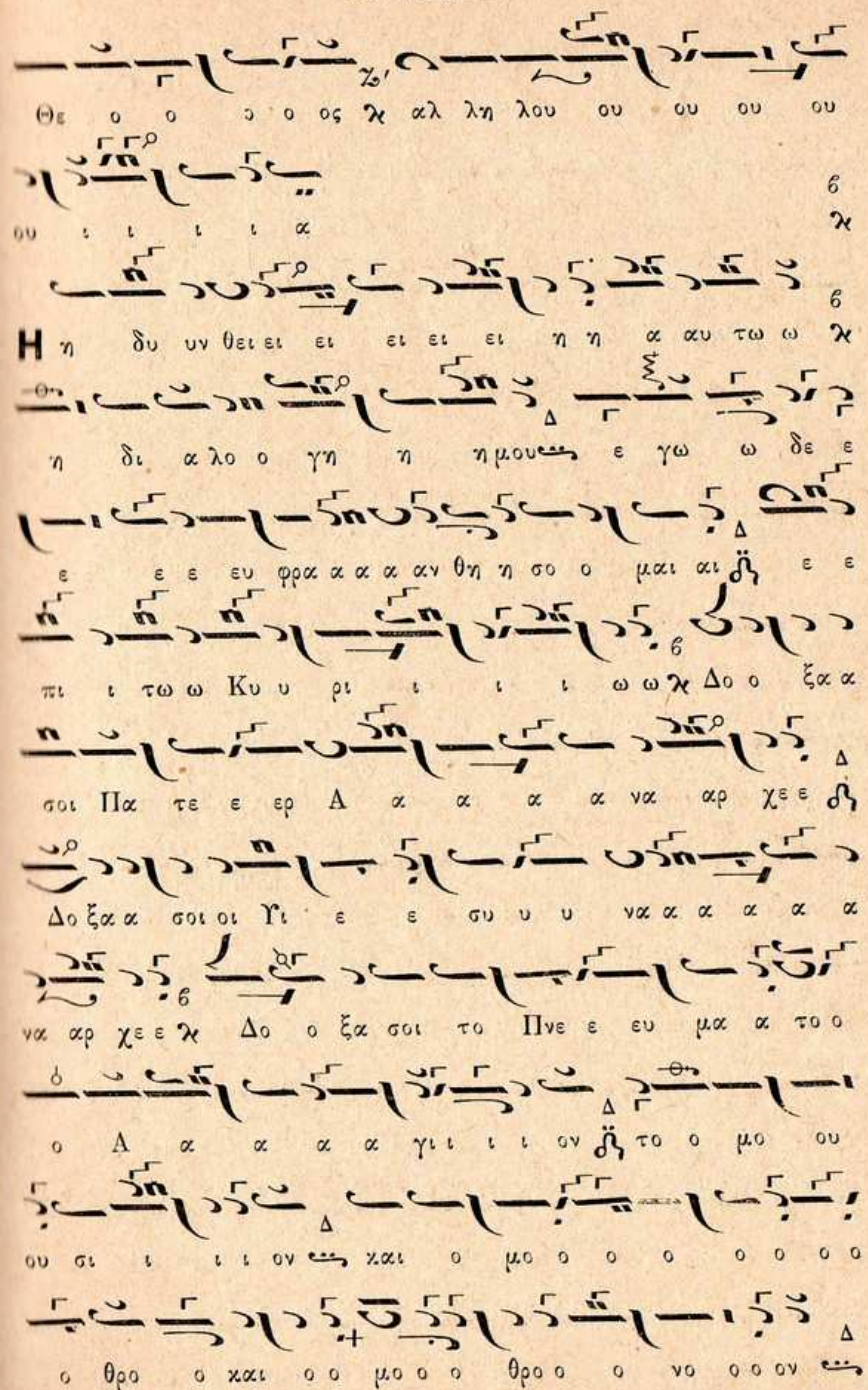 Θε ο ο ο ο ος αλ λη λου ου ου ου ου
ου ι ι ι ι α
Η η δυ υν θει ει ει ει ει ει η η α αυ τω ω
η δι α λο ο γη η η μου ε γω ω δε ε
ε ε ε ευ φρα α α α αν θη η σο ο μαι αι ε ε
πι ι τω ω Κυ υ ρι ι ι ι ω ω Δο ο ξα α
σοι Πα τε ε ερ Α α α α α να αρ χε ε
Δο ξα α σοι οι Υι ε ε συ υ υ να α α α α α
να αρ χε ε Δο ο ξα σοι το Πνε ε ευ μα α το ο
ο Α α α α α γι ι ι ι ον το ο μο ου
ου σι ι ι ι ον και ο μο ο ο ο ο ο ο ο
ο θρο ο και ο ο μο ο ο θρο ο ο νο ο ο ον